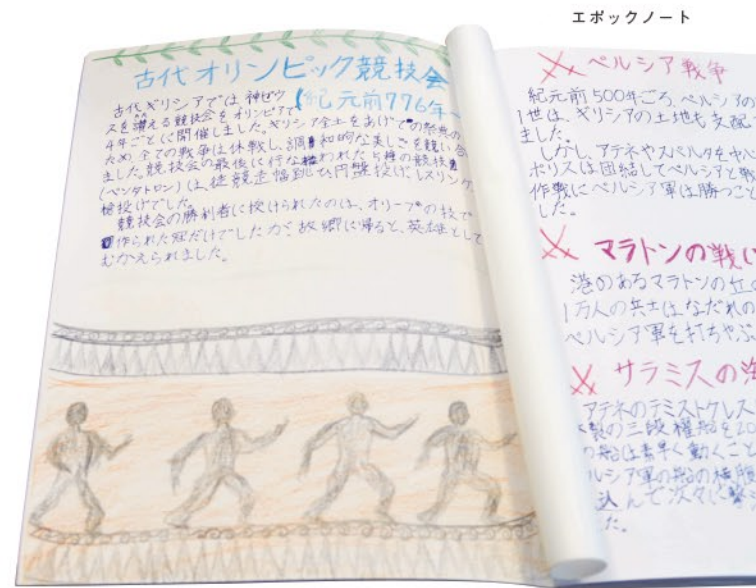 エポックノート
古代オリンピック競技会
(紀元前776年～
古代ギリシアでは、神ゼウ
スを讃える競技会をオリンピアで
4年ごとに開催しました。ギリシア全土をあげての祭典の
ため、全ての戦争は休戦し、調和的な美しさを競い合
ました。競技会の最後に行なわれた5種の競技
(ペンタトロン)は、徒競走、幅跳び、円盤投げ、レスリング、
槍投げでした。
競技会の勝利者に授けられたのは、オリーブの枝で
作られた冠だけでしたが、故郷に帰ると、英雄として
むかえられました。
ペルシア戦争
紀元前500年ごろ、ペルシアの
1世は、ギリシアの土地も支配
ました。
しかし、アテネやスパルタをや
ポリスは団結してペルシアと戦
作戦にペルシア軍は勝つこと
した。
マラトンの戦い
港のあるマラトンの丘の
1万人の兵士はなだれの
ペルシア軍を打ちやぶ
サラミスの海
アテネのテミストクレス
製の三段櫂船を20
の船は素早く動くこと
ルシア軍の船の横腹
込んで次々に撃
た。